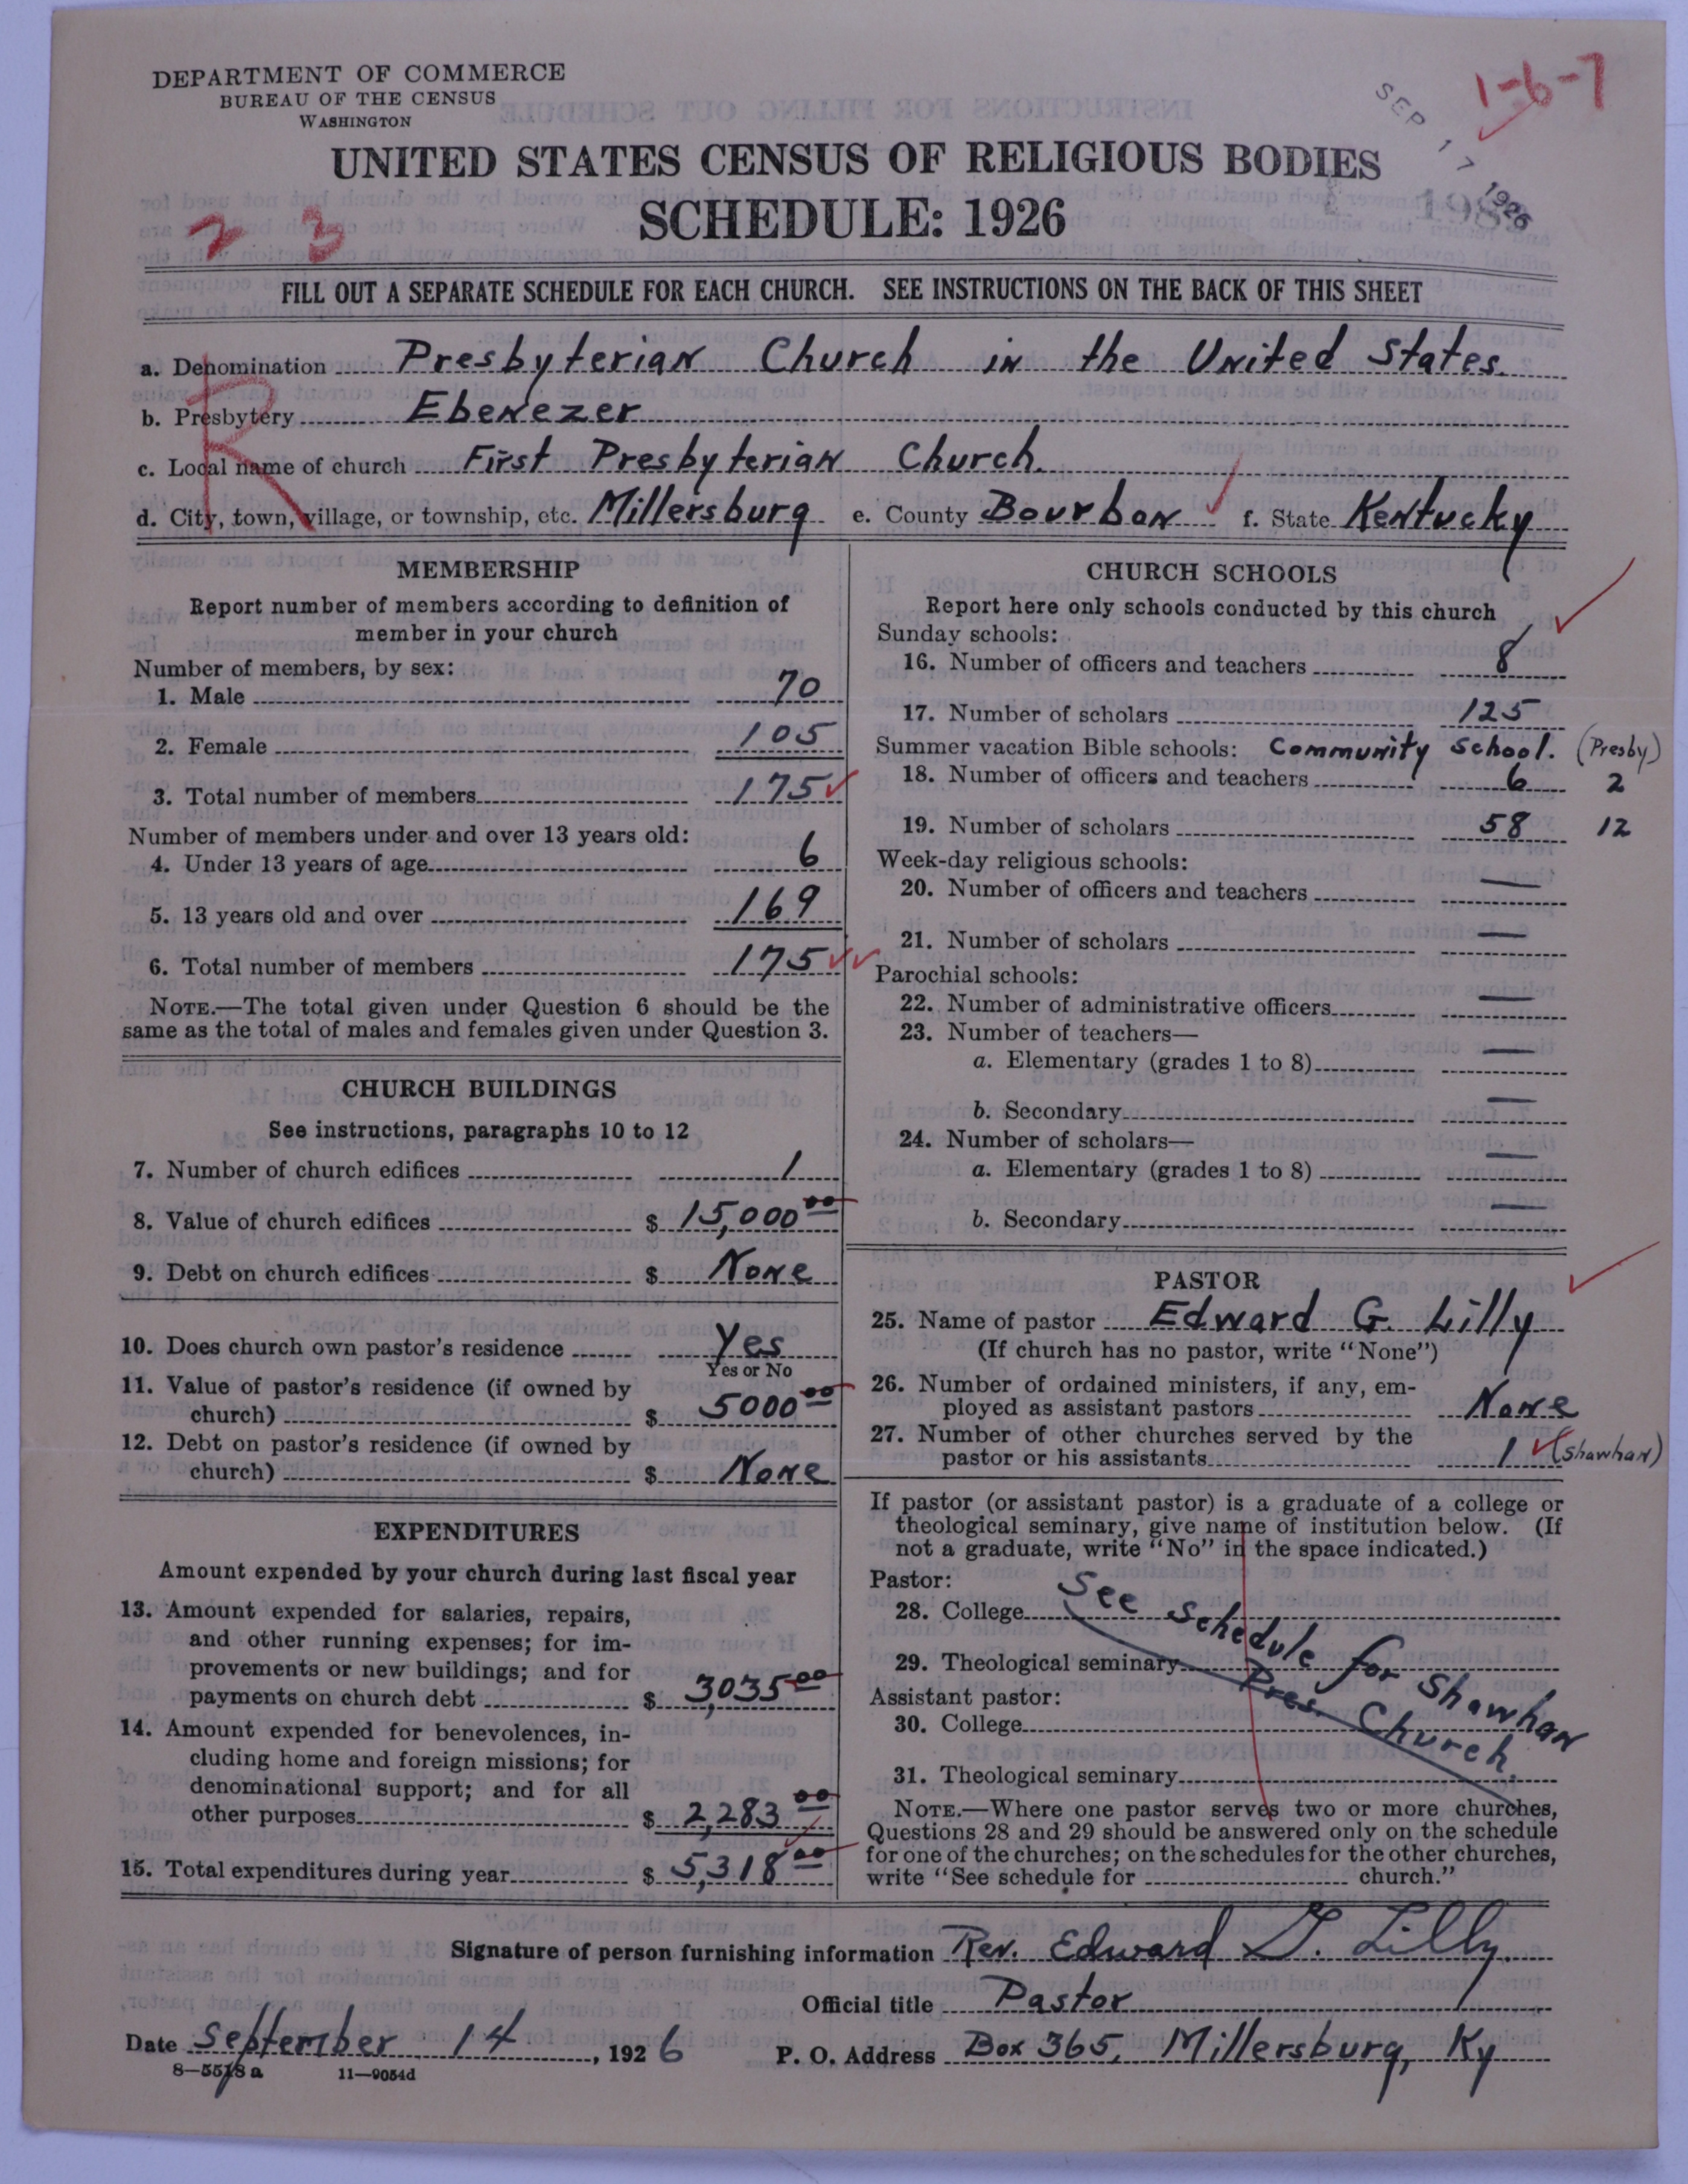 DEPARTMENT OF COMMERCE
BUREAU OF THE CENSUS
WASHINGTON
1-6-7
SEP 17 1926
UNITED STATES CENSUS OF RELIGIOUS BODIES
SCHEDULE: 1926
2 3
FILL OUT A SEPARATE SCHEDULE FOR EACH CHURCH. SEE INSTRUCTIONS ON THE BACK OF THIS SHEET
R
a. Denomination Presbyterian Church in the United States
b. Presbytery Ebenezer
c. Local name of church First Presbyterian Church
d. City, town, village, or township, etc. Millersburg e. County Bourbon f. State Kentucky
MEMBERSHIP
Report number of members according to definition of
member in your church
Number of members, by sex:
1. Male 70
2. Female 105
3. Total number of members 175
Number of members under and over 13 years old:
4. Under 13 years of age 6
5. 13 years old and over 169
6. Total number of members 175
NOTE.—The total given under Question 6 should be the
same as the total of males and females given under Question 3.
CHURCH BUILDINGS
See instructions, paragraphs 10 to 12
7. Number of church edifices 1
8. Value of church edifices $ 15,000 00
9. Debt on church edifices $ None
10. Does church own pastor's residence Yes
Yes or No
11. Value of pastor's residence (if owned by
church) $ 5000 00
12. Debt on pastor's residence (if owned by
church) $ None
EXPENDITURES
Amount expended by your church during last fiscal year
13. Amount expended for salaries, repairs,
and other running expenses; for im-
provements or new buildings; and for
payments on church debt $ 3,035 00
14. Amount expended for benevolences, in-
cluding home and foreign missions; for
denominational support; and for all
other purposes $ 2,283 00
15. Total expenditures during year $ 5,318 00
CHURCH SCHOOLS
Report here only schools conducted by this church
Sunday schools:
16. Number of officers and teachers 8
17. Number of scholars 125
Summer vacation Bible schools: Community School. (Presby)
18. Number of officers and teachers 6 2
19. Number of scholars 58 12
Week-day religious schools:
20. Number of officers and teachers —
21. Number of scholars —
Parochial schools:
22. Number of administrative officers —
23. Number of teachers—
a. Elementary (grades 1 to 8) —
b. Secondary —
24. Number of scholars—
a. Elementary (grades 1 to 8) —
b. Secondary —
PASTOR
25. Name of pastor Edward G. Lilly
(If church has no pastor, write "None")
26. Number of ordained ministers, if any, em-
ployed as assistant pastors None
27. Number of other churches served by the
pastor or his assistants 1 (Shawhan)
If pastor (or assistant pastor) is a graduate of a college or
theological seminary, give name of institution below. (If
not a graduate, write "No" in the space indicated.)
Pastor:
28. College
29. Theological seminary
Assistant pastor:
30. College
31. Theological seminary
See schedule for Shawhan
Pres. Church.
NOTE.—Where one pastor serves two or more churches,
Questions 28 and 29 should be answered only on the schedule
for one of the churches; on the schedules for the other churches,
write "See schedule for church."
Signature of person furnishing information Rev. Edward G. Lilly
Official title Pastor
Date September 14, 1926 P. O. Address Box 365, Millersburg, Ky
8—5518 a 11—9054d